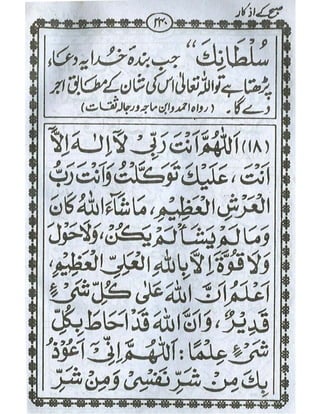 صبح کے اذکار
۲۳۰
سُلْطَانِكَ“ جب بندۂ خدا یہ دعاء
پڑھتا ہے تو اللہ تعالیٰ اس کی شان کے مطابق اجر
دے گا۔ (رواہ احمد وابن ماجہ ورجالہ ثقات)
(۱۸) اَللّٰهُمَّ اَنْتَ رَبِّيْ لَآ اِلٰهَ اِلَّآ
اَنْتَ، عَلَيْكَ تَوَكَّلْتُ وَاَنْتَ رَبُّ
الْعَرْشِ الْعَظِيْمِ، مَا شَآءَ اللهُ كَانَ
وَمَا لَمْ يَشَأْ لَمْ يَكُنْ، وَلَا حَوْلَ
وَلَا قُوَّةَ اِلَّا بِاللهِ الْعَلِيِّ الْعَظِيْمِ،
اَعْلَمُ اَنَّ اللهَ عَلٰى كُلِّ شَيْءٍ
قَدِيْرٌ، وَاَنَّ اللهَ قَدْ اَحَاطَ بِكُلِّ
شَيْءٍ عِلْمًا: اَللّٰهُمَّ اِنِّيْ اَعُوْذُ
بِكَ مِنْ شَرِّ نَفْسِيْ وَمِنْ شَرِّ